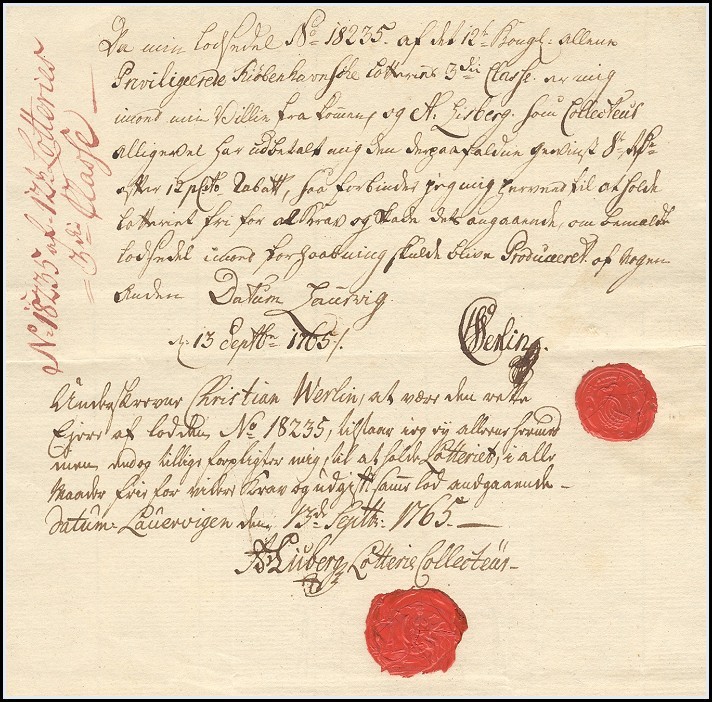 Da min Lodseedel No 18235. af det 12te Kongl: allene
Priviligeerede Kiøbenhavnske Lotteries 3die Classe. er mig
imod min Villie fra kommen, og A. Lisberg. som Collecteur
alligevel har udbetalt mig den derpaa faldne gevinst 8t
efter 12 pCto Rabatt, saa forbinder jeg mig herved til at holde
Lotteriet fri for al Krav og skade det angaaende, om bemeldte
Lodseedel imod forhaabning skulde blive Produceret af Nogen
Anden Datum Laurvig
d. 13 Septbr 1765/.
CWerlin.
Underskrevne Christian Werlin, at være den rette
Ejere af lodden No 18235, tilstaar jeg ej alleene herved
men endog tillige forpligter mig, til at holde Lotteriet, i alle
Maader frie for videre Krav og udgift samme lod andgaaende-
datum Lauervigen den 13de Septbr: 1765.
Lotterie Collecteur-
No 18235 af 12te Lotteries
3die Classe